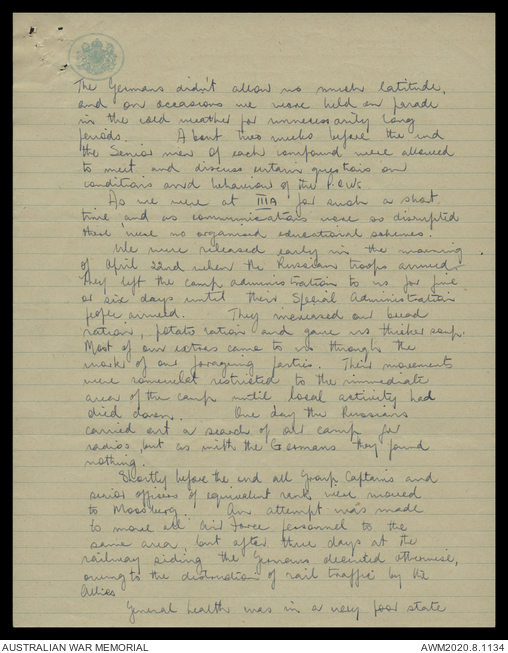 The Germans didn't allow us much latitude,
and on occasions we were held on parade
in the cold weather for unnecessarily long
periods. About two weeks before the end
the Senior men of each compound were allowed
to meet and discuss certain questions on
conditions and behaviour of the P.O.Ws
As we were at IIIA for such a short
time and as communications were so disrupted
there were no organised educational schemes.
We were released early in the morning
of April 22nd when the Russian troops arrived.
They left the camp administration to us for five
or six days until their Special Administration
people arrived. They increased our bread
ration, potato ration and gave us thicker soup.
Most of our extras came to us through the
work of our foraging parties. Their movements
were somewhat restricted to the immediate
area of the camp until local activity had
died down. One day the Russians
carried out a search of our camp for
radios, but as with the Germans they found
nothing.
Shortly before the end all Group Captains and
senior officers of equivalent rank were moved
to Moosberg. An attempt was made
to move all Air Force personnel to the
same area, but after three days at the
railway siding the Germans decided otherwise,
owing to the distruction of rail traffic by the
Allies
General health was in a very poor state
AUSTRALIAN WAR MEMORIAL
AWM2020.8.1134